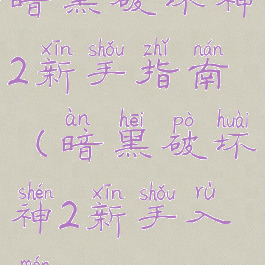 暗黑破坏神
xīn shǒu zhǐ nán
2新手指南
àn hēi pò huài
(暗黑破坏
shén xīn shǒu rù
神2新手入
mén